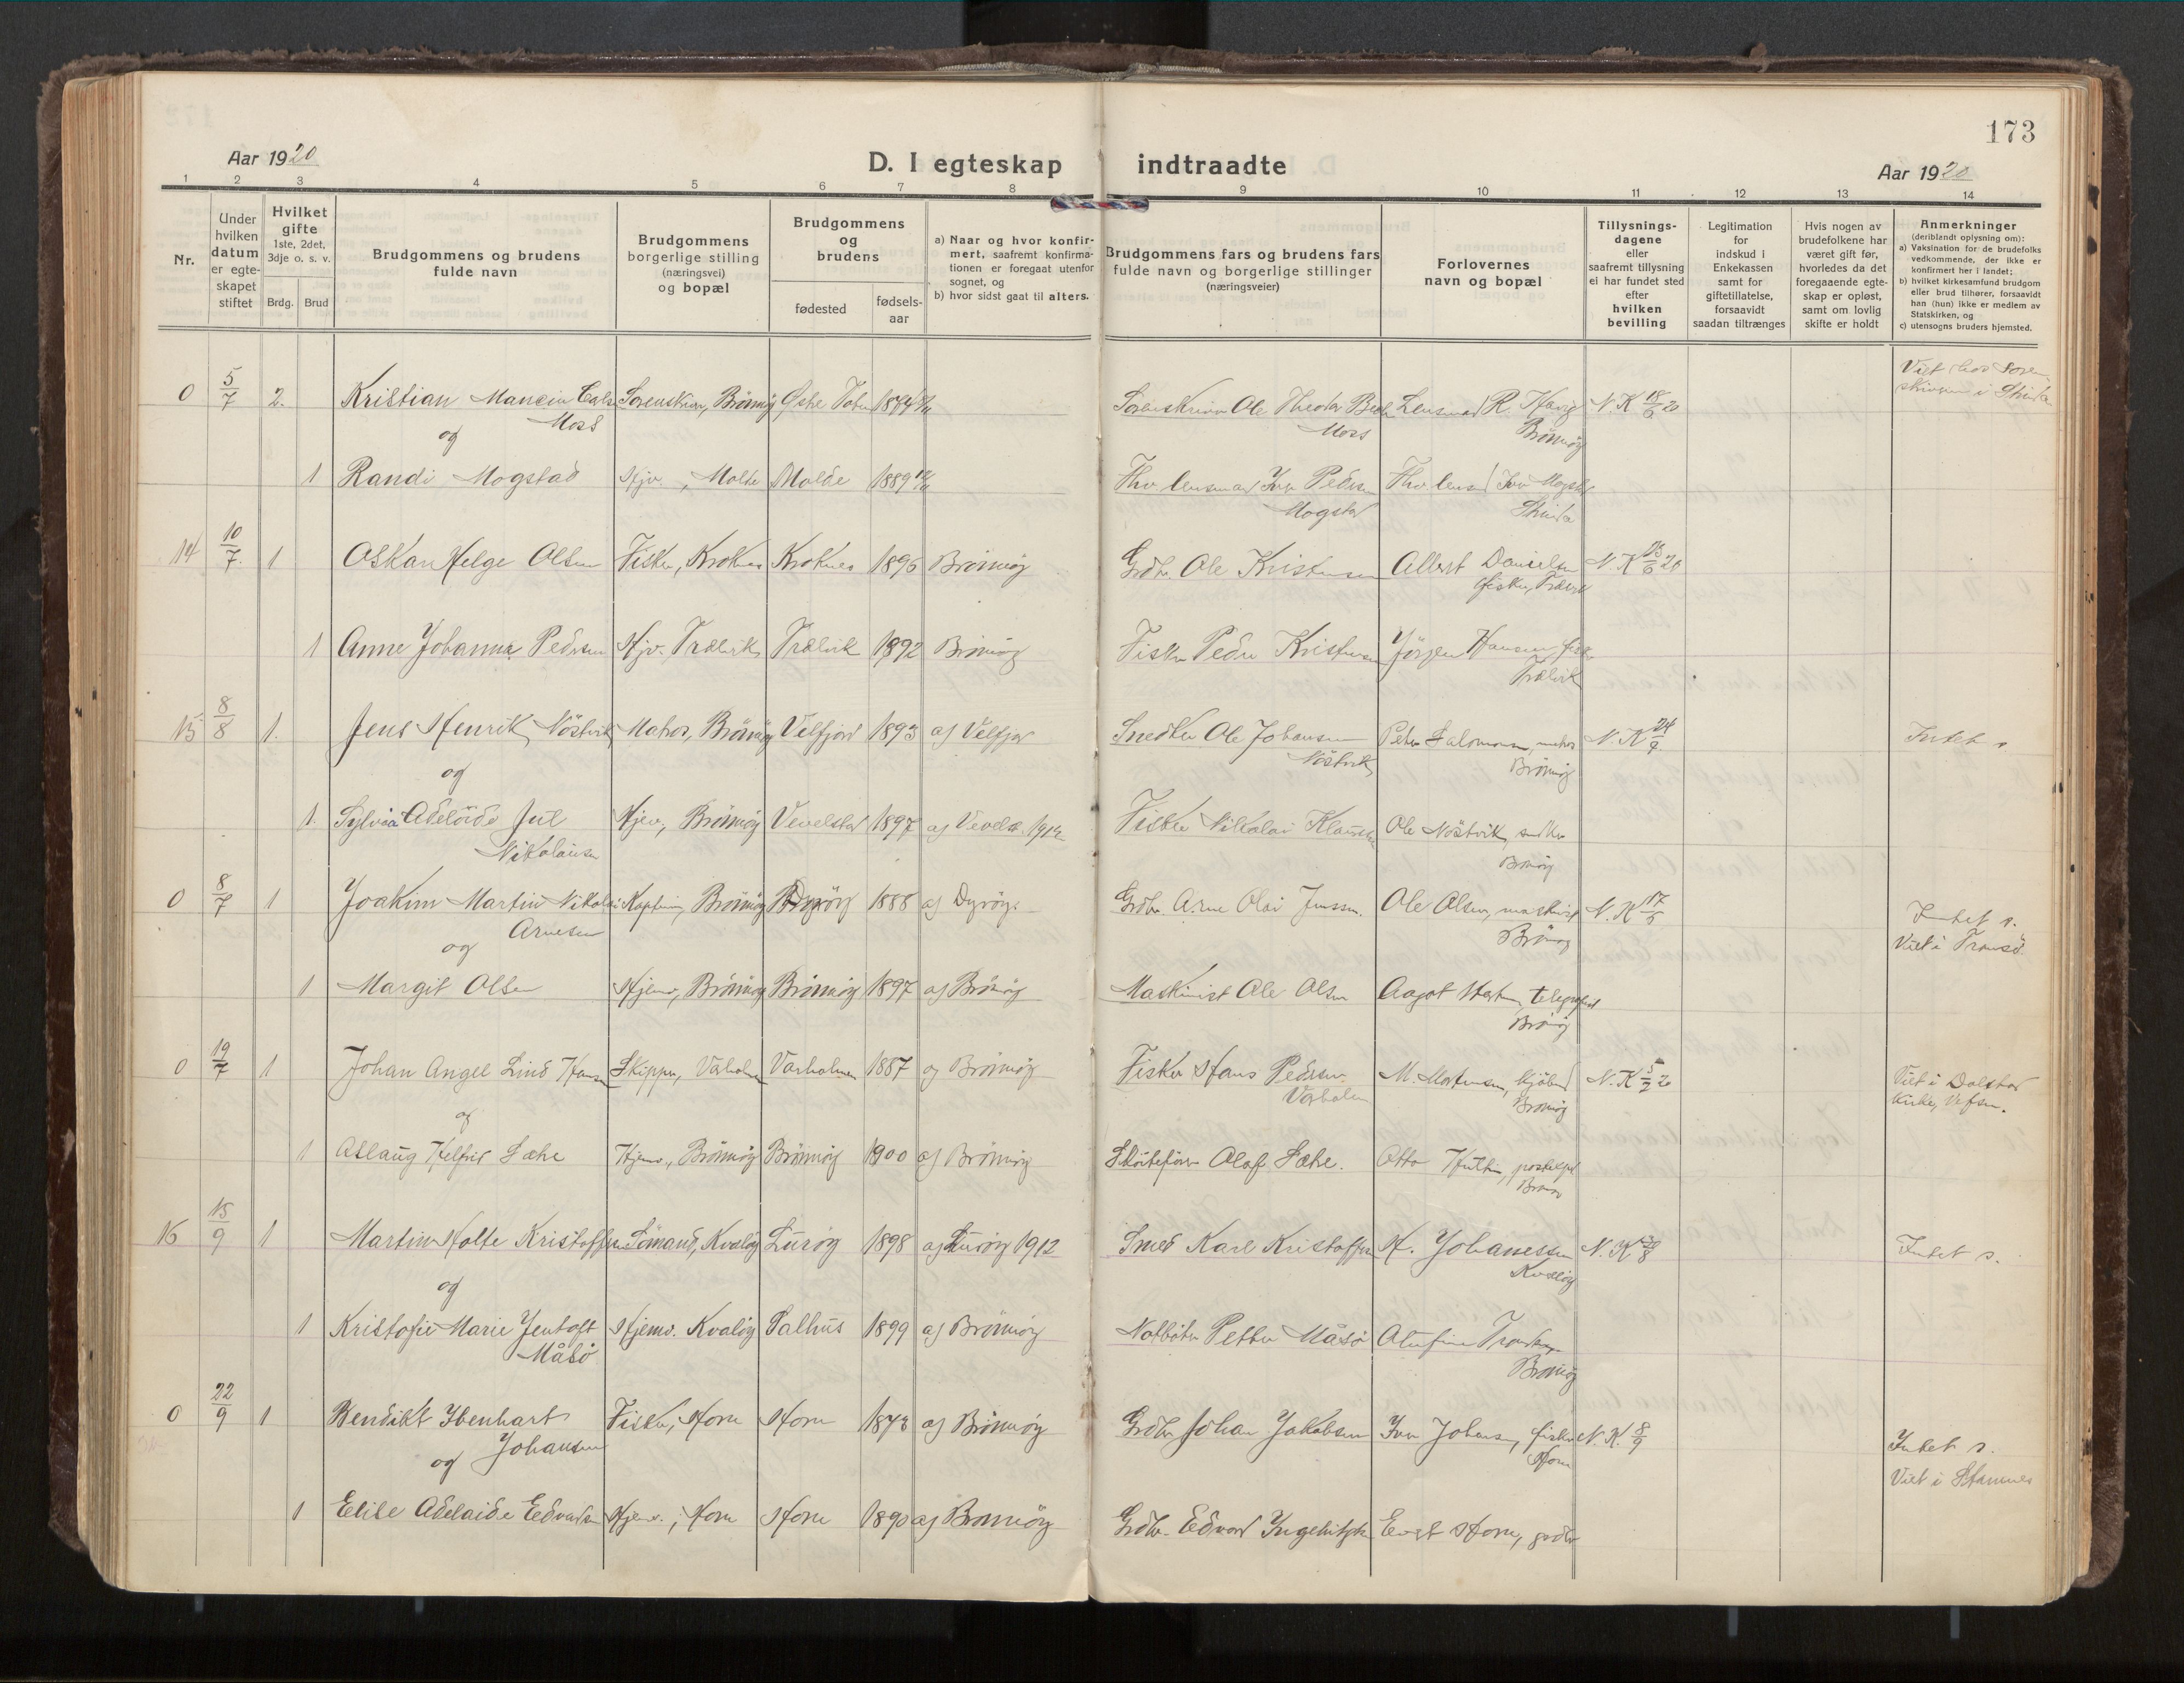 173
Aar 1920
D. I egteskap indtraadte
Aar 1920
1 2 3 4 5 6 7 8 9 10 11 12 13 14
Nr.
Under hvilken datum er egte-skapet stiftet
Hvilket gifte 1ste, 2det, 3dje o. s. v.
Brdg. Brud
Brudgommens og brudens fulde navn
Brudgommens borgerlige stilling (næringsvei) og bopæl
Brudgommens og brudens
fødested
fødsels-aar
a) Naar og hvor konfir-mert, saafremt konfirma-tionen er foregaat utenfor sognet, og
b) hvor sidst gaat til alters.
Brudgommens fars og brudens fars fulde navn og borgerlige stillinger (næringsveier)
Forlovernes navn og bopæl
Tillysnings-dagene eller saafremt tillysning ei har fundet sted efter hvilken bevilling
Legitimation for indskud i Enkekassen samt for giftetillatelse, forsaavidt saadan tiltrænges
Hvis nogen av brudefolkene har været gift før, hvorledes da det foregaaende egte-skap er opløst, samt om lovlig skifte er holdt
Anmerkninger
(deriblandt oplysning om):
a) Vaksination for de brudefolks vedkommende, der ikke er konfirmert her i landet;
b) hvilket kirkesamfund brudgom eller brud tilhører, forsaavidt han (hun) ikke er medlem av Statskirken, og
c) utensogns bruders hjemsted.
0 5/7 2. Kristian Moss Sorenskriver, Brönnöy Ole Theodor Lensmand R. Brönnöy N. K 18/6 20 Viet hos Soren-skriveren i Strinda
Moss
og
1 Randi Mogstad Hjv., Molde Molde 1889 Fhv. lensmand Iver Pedersen Mogstad Fhv. lensmd Iver Mogstad Strinda
14 10/7. 1 Oskar Helge Olsen Fisker, Kroknes Kroknes 1896 Brönnöy Grdbr. Ole Kristensen Albert Danielsen fisker, Trælvik N. K 20
1 Anne Johanna Pedersen Hjv. Trælvik Trælvik 1892 Brönnöy Fisker Peder Kristensen Jörgen Hansen, fisker Trælvik
15 8/8 1. Jens Henrik Nöstvik Matros, Brönnöy Velfjord 1893 af Velfjord Snedker Ole Johansen Nöstvik Peter Salomonsen, matros Brönnöy N. K 24/7 Intet s.
og
1. Sylvia Adelöide Jul Nikolaisen Hjem., Brönnöy Vevelstad 1897 af Vevelst. 1912 Fisker Nikolai Klausen Ole Nöstvik, snedker Brönnöy
0 8/7 1 Joakim Martin Nikolai Arnesen Kaptein, Brönnöy Dyröy 1888 af Dyröy. Grdbr. Arne Olai Jenssen. Ole Olsen, maskinist Brönnöy N. K 17/6 Intet s. Viet i Tromsö.
og
1 Margit Olsen Hjem., Brönnöy Brönnöy 1897 af Brönnöy Maskinist Ole Olsen Aagot telegrafist Brönnöy
0 19/7 1 Johan Angel Lind Hansen Skipper, Varholmen Varholmen 1887 af Brönnöy Fisker Hans Pedersen Varholmen M. Mortensen, Kjöbmd Brönnöy N. K 5/7 20 Viet i Dolstad Kirke, Vefsn.
og
1 Aslaug Helfrid Sæthe Hjem., Brönnöy Brönnöy 1900 af Brönnöy Skøiteförer Olaf Sæthe. Otto postexp. Brönnöy
16 15/9 1 Martin Holte Kristoffersen Sömand, Kvalöy Luröy 1898 af Luröy 1912 Smed Karl Kristoffersen H. Johanessen Kvalöy N. K Intet s.
og
1 Kristofie Marie Jentoft Måsö Hjem. Kvalöy Salhus 1899 af Brönnöy Notböter Petter Måsö Olufine Brönnöy
0 22/9 1 Bendikt Ibenhart Johansen Fisker, Horn Horn 1873 af Brönnöy Grdbr Johan Jakobsen Iver Johansen, fisker Horn N. K. 8/9 Intet s. Viet i Stamnes
og
1 Elise Adelaide Edvardsen Hjem., Horn Horn 1890 af Brönnöy Grdbr. Edvard Ingebrigtsen Horn, grdbr